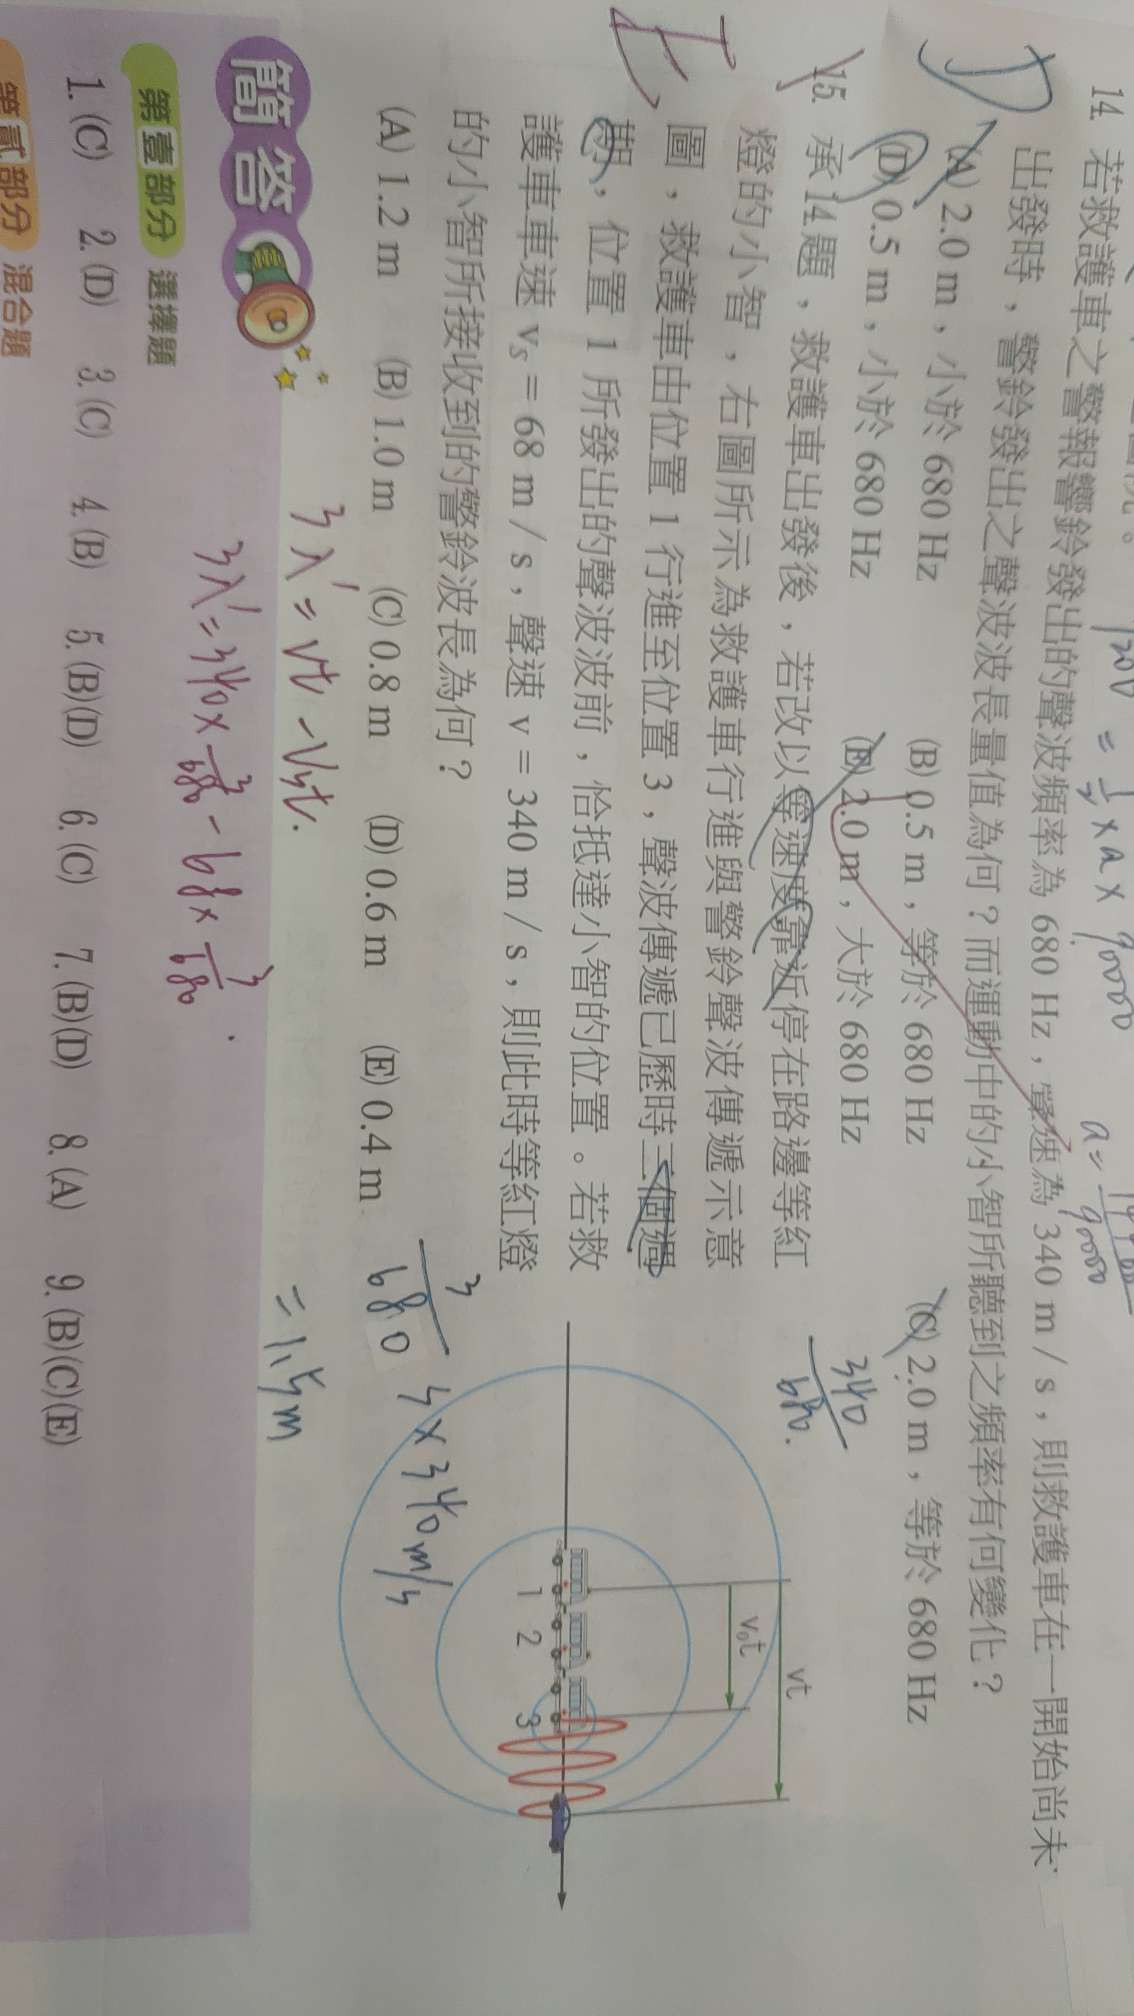 120V = × a × 90000
a=
14. 若救護車之警報響鈴發出的聲波頻率為 680 Hz，聲速為 340 m / s，則救護車在一開始尚未
出發時，警鈴發出之聲波波長量值為何？而運動中的小智所聽到之頻率有何變化？
D
(A) 2.0 m，小於 680 Hz (B) 0.5 m，等於 680 Hz (C) 2.0 m，等於 680 Hz
(D) 0.5 m，小於 680 Hz (E) 2.0 m，大於 680 Hz
340
680.
15. 承 14 題，救護車出發後，若改以等速度靠近停在路邊等紅
燈的小智，右圖所示為救護車行進與警鈴聲波傳遞示意
圖，救護車由位置 1 行進至位置 3，聲波傳遞已歷時三個週
期，位置 1 所發出的聲波波前，恰抵達小智的位置。若救
護車車速 vS = 68 m / s，聲速 v = 340 m / s，則此時等紅燈
的小智所接收到的警鈴波長為何？
E
(A) 1.2 m (B) 1.0 m (C) 0.8 m (D) 0.6 m (E) 0.4 m
vt
v₀t
1 2 3
3/680
3 × 340 m/s
3λ' = vt - Vst.
3λ' = 340 × 3/680 - 68 × 3/680
= 1.5m
簡答
第壹部分 選擇題
1. (C) 2. (D) 3. (C) 4. (B) 5. (B)(D) 6. (C) 7. (B)(D) 8. (A) 9. (B)(C)(E)
第貳部分 混合題